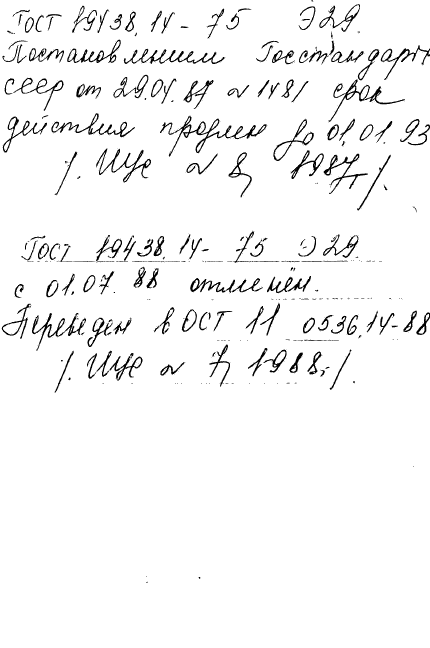 ГОСТ 19438.14-75 Э29.
Постановлением Госстандарта
СССР от 29.04.87 № 1481 срок
действия продлен до 01.01.93
/. ИУС № 8, 1987г./.
ГОСТ 19438.14-75 Э29
с 01.07.88 отменён.
Переведен в ОСТ 11 0536.14-88
/. ИУС № 7, 1988г./.